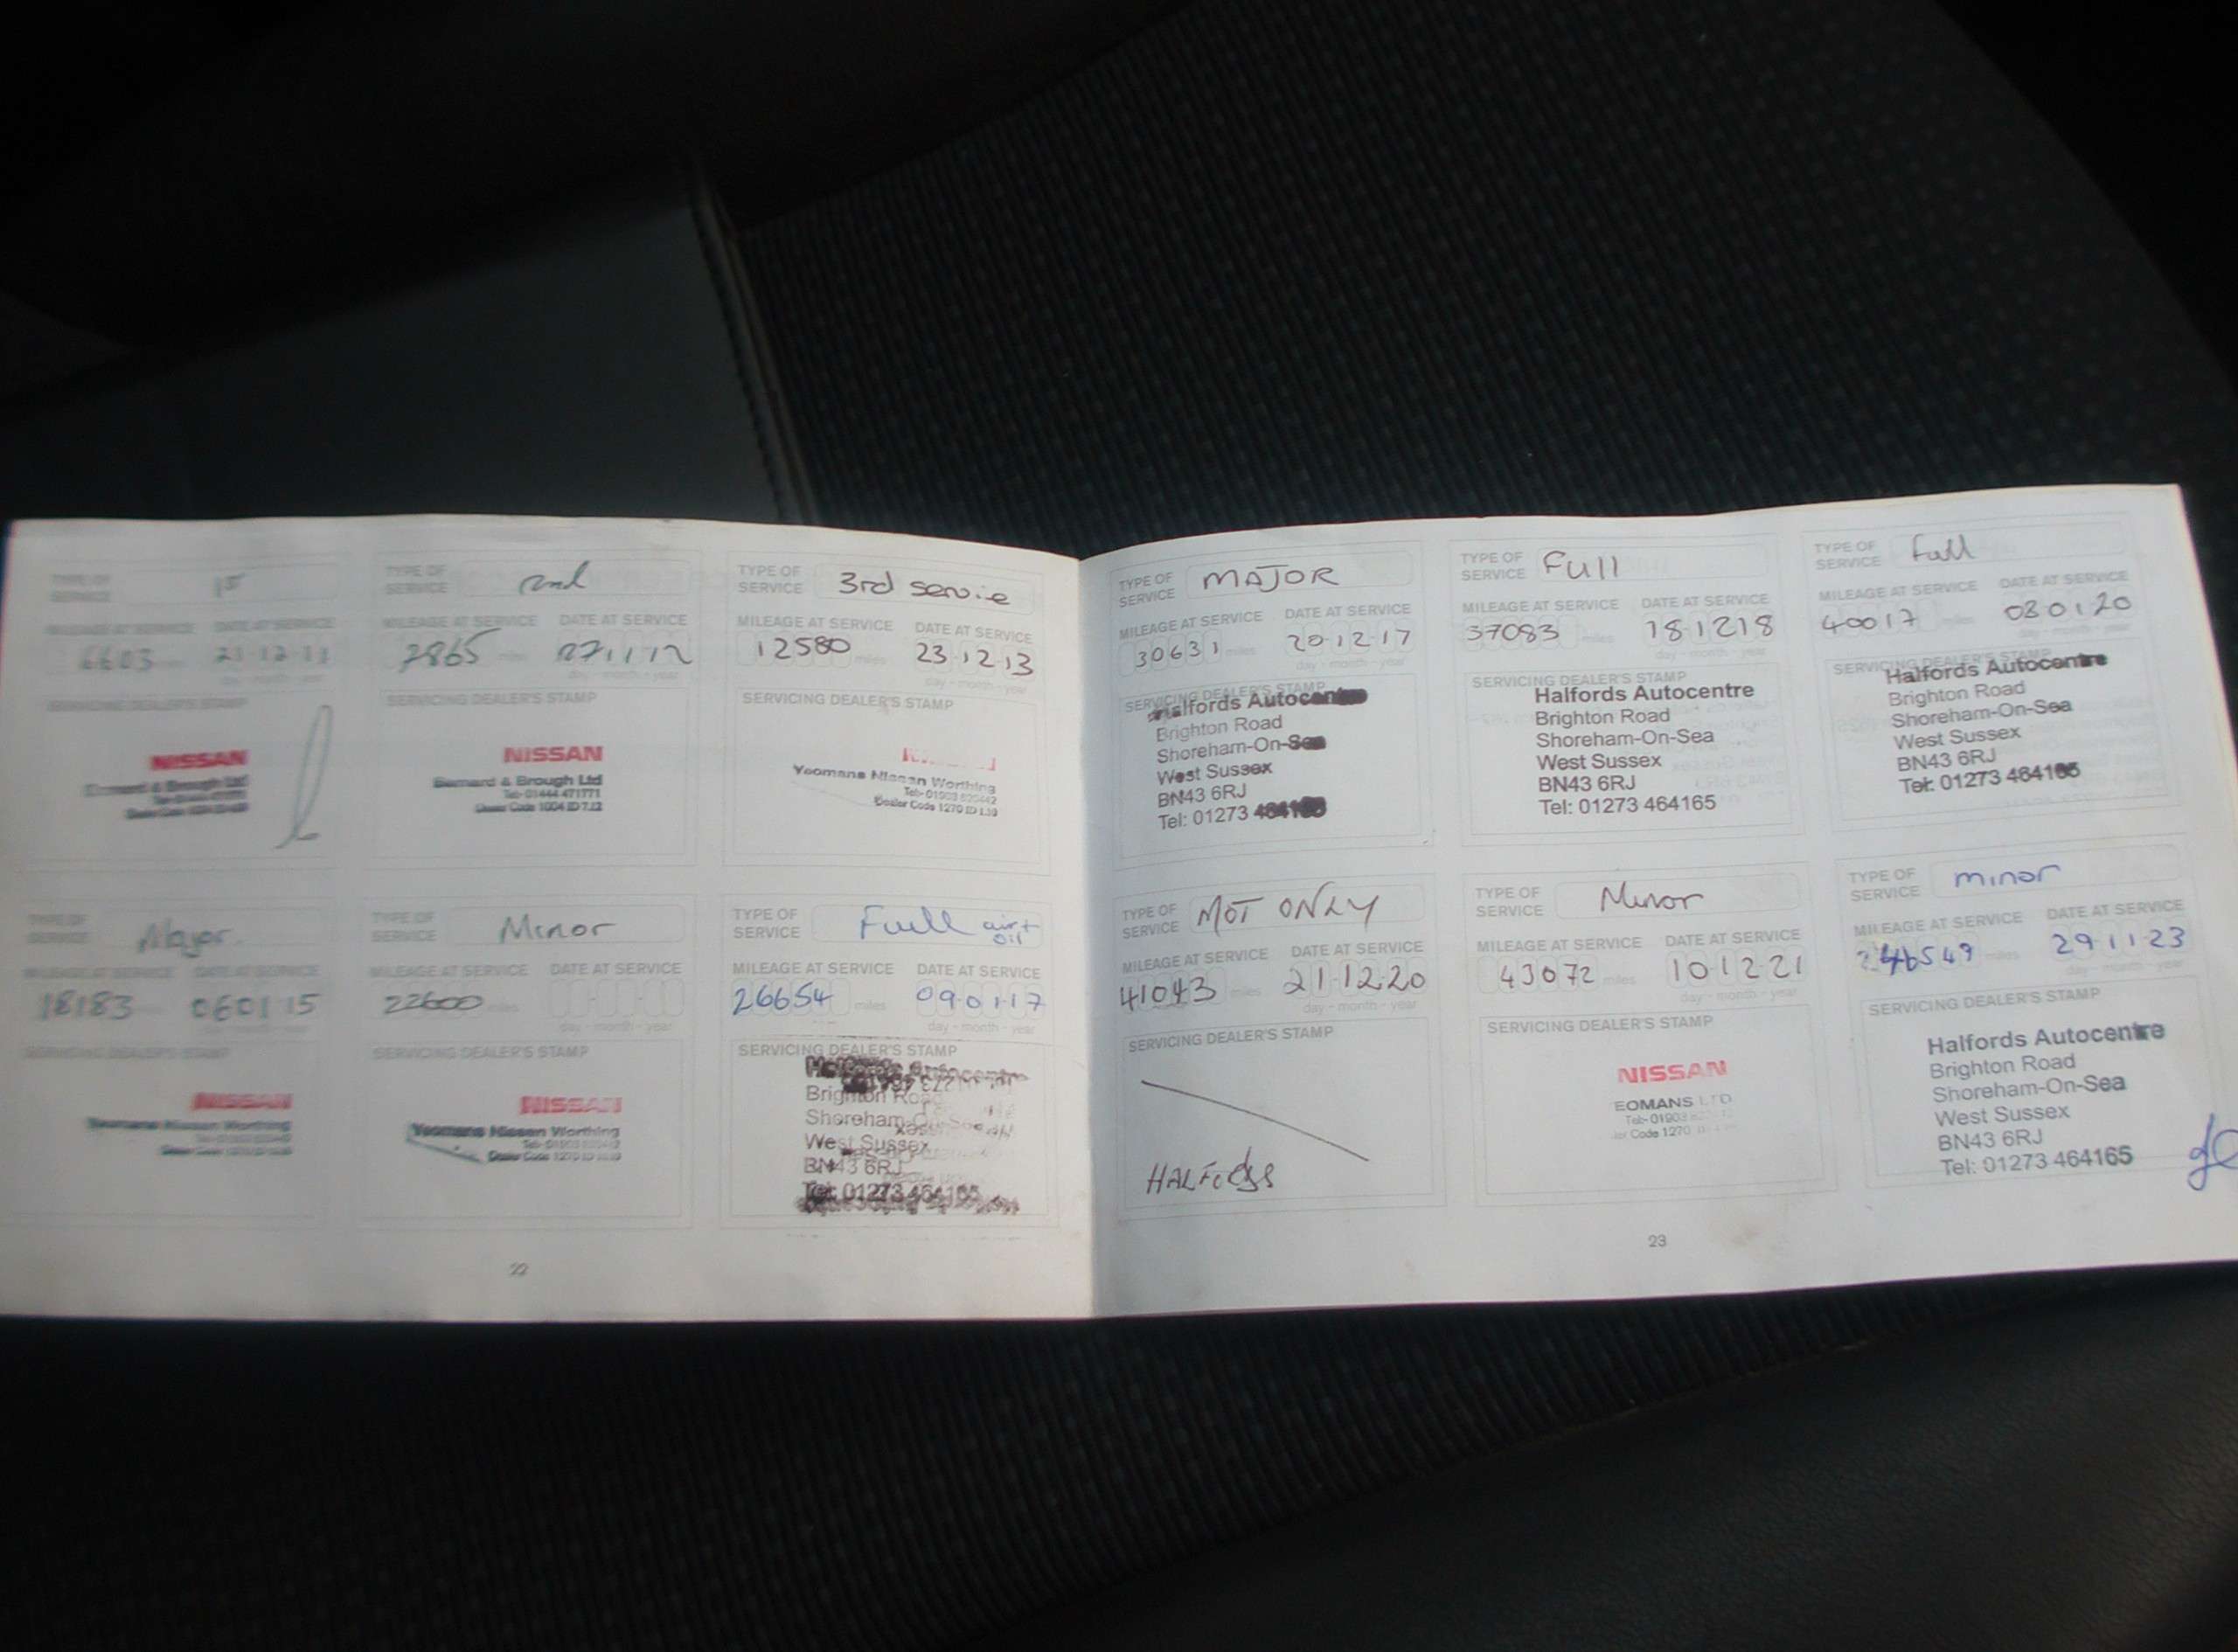 TYPE OF SERVICE 1st
MILEAGE AT SERVICE DATE AT SERVICE
6603 21 12 11
day - month - year
SERVICING DEALER'S STAMP
NISSAN
& Brough Ltd
TYPE OF SERVICE 2nd
MILEAGE AT SERVICE DATE AT SERVICE
7865 miles 271112
day - month - year
SERVICING DEALER'S STAMP
NISSAN
Barnard & Brough Ltd
Tel:- 01444 471771
Dealer Code 1004 ID 7.12
TYPE OF SERVICE 3rd service
MILEAGE AT SERVICE DATE AT SERVICE
12580 miles 23.12.13
day - month - year
SERVICING DEALER'S STAMP
Yeomans Nissan Worthing
Dealer Code 1270 ID 1.10
TYPE OF SERVICE Major
MILEAGE AT SERVICE DATE AT SERVICE
18183 060115
SERVICING DEALER'S STAMP
NISSAN
Yeomans Nissan Worthing
TYPE OF SERVICE Minor
MILEAGE AT SERVICE DATE AT SERVICE
22600 miles
day - month - year
SERVICING DEALER'S STAMP
NISSAN
Yeomans Nissan Worthing
TYPE OF SERVICE Full air + oil
MILEAGE AT SERVICE DATE AT SERVICE
26654 miles 09.01.17
day - month - year
SERVICING DEALER'S STAMP
Halfords Autocentre
Brighton Road
Shoreham-On-Sea
West Sussex
BN43 6RJ
Tel: 01273 464165
22
TYPE OF SERVICE MAJOR
MILEAGE AT SERVICE DATE AT SERVICE
30631 miles 20.12.17
day - month - year
SERVICING DEALER'S STAMP
Halfords Autocentre
Brighton Road
Shoreham-On-Sea
West Sussex
BN43 6RJ
Tel: 01273 464165
TYPE OF SERVICE Full
MILEAGE AT SERVICE DATE AT SERVICE
37083 miles 18.1218
day - month - year
SERVICING DEALER'S STAMP
Halfords Autocentre
Brighton Road
Shoreham-On-Sea
West Sussex
BN43 6RJ
Tel: 01273 464165
TYPE OF SERVICE Full
MILEAGE AT SERVICE DATE AT SERVICE
40017 miles 030120
day - month - year
SERVICING DEALER'S STAMP
Halfords Autocentre
Brighton Road
Shoreham-On-Sea
West Sussex
BN43 6RJ
Tel: 01273 464165
TYPE OF SERVICE MOT ONLY
MILEAGE AT SERVICE DATE AT SERVICE
41043 miles 21.12.20
day - month - year
SERVICING DEALER'S STAMP
HALFORDS
TYPE OF SERVICE Minor
MILEAGE AT SERVICE DATE AT SERVICE
43072 miles 101221
day - month - year
SERVICING DEALER'S STAMP
NISSAN
EOMANS LTD
Tel:- 01903
Code 1270
TYPE OF SERVICE minor
MILEAGE AT SERVICE DATE AT SERVICE
46549 miles 29.11.23
day - month - year
SERVICING DEALER'S STAMP
Halfords Autocentre
Brighton Road
Shoreham-On-Sea
West Sussex
BN43 6RJ
Tel: 01273 464165
23